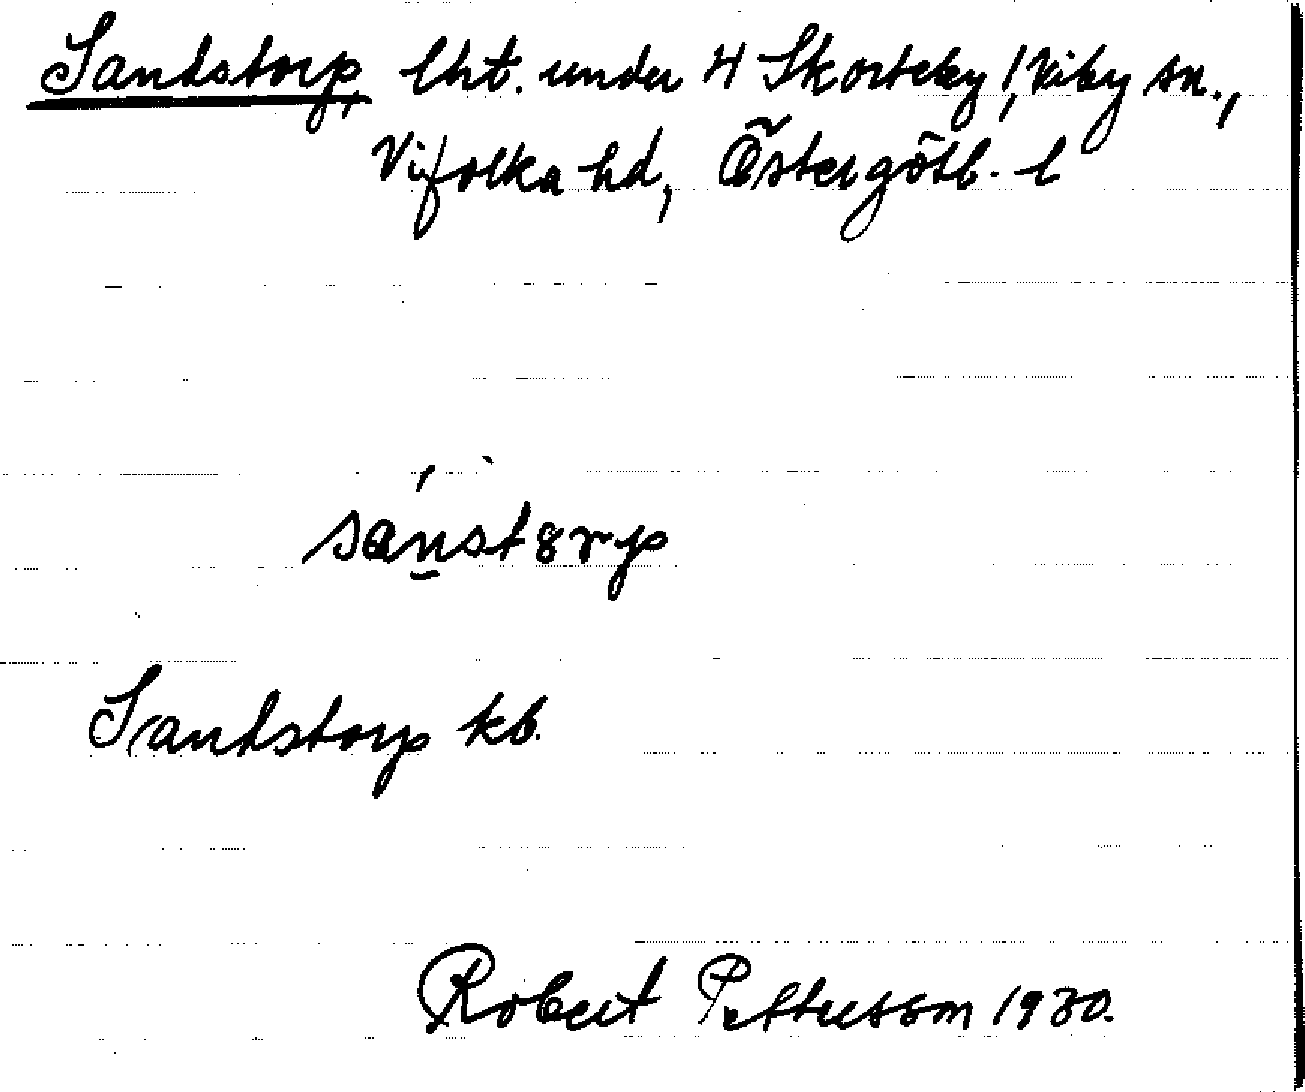 Sandstorp, lht. under 4 Skorteby, Viby sn.,
Vifolka hd, Östergötl. l
sanst8rp
Sandstorp kb.
Robert Pettersson 1930.